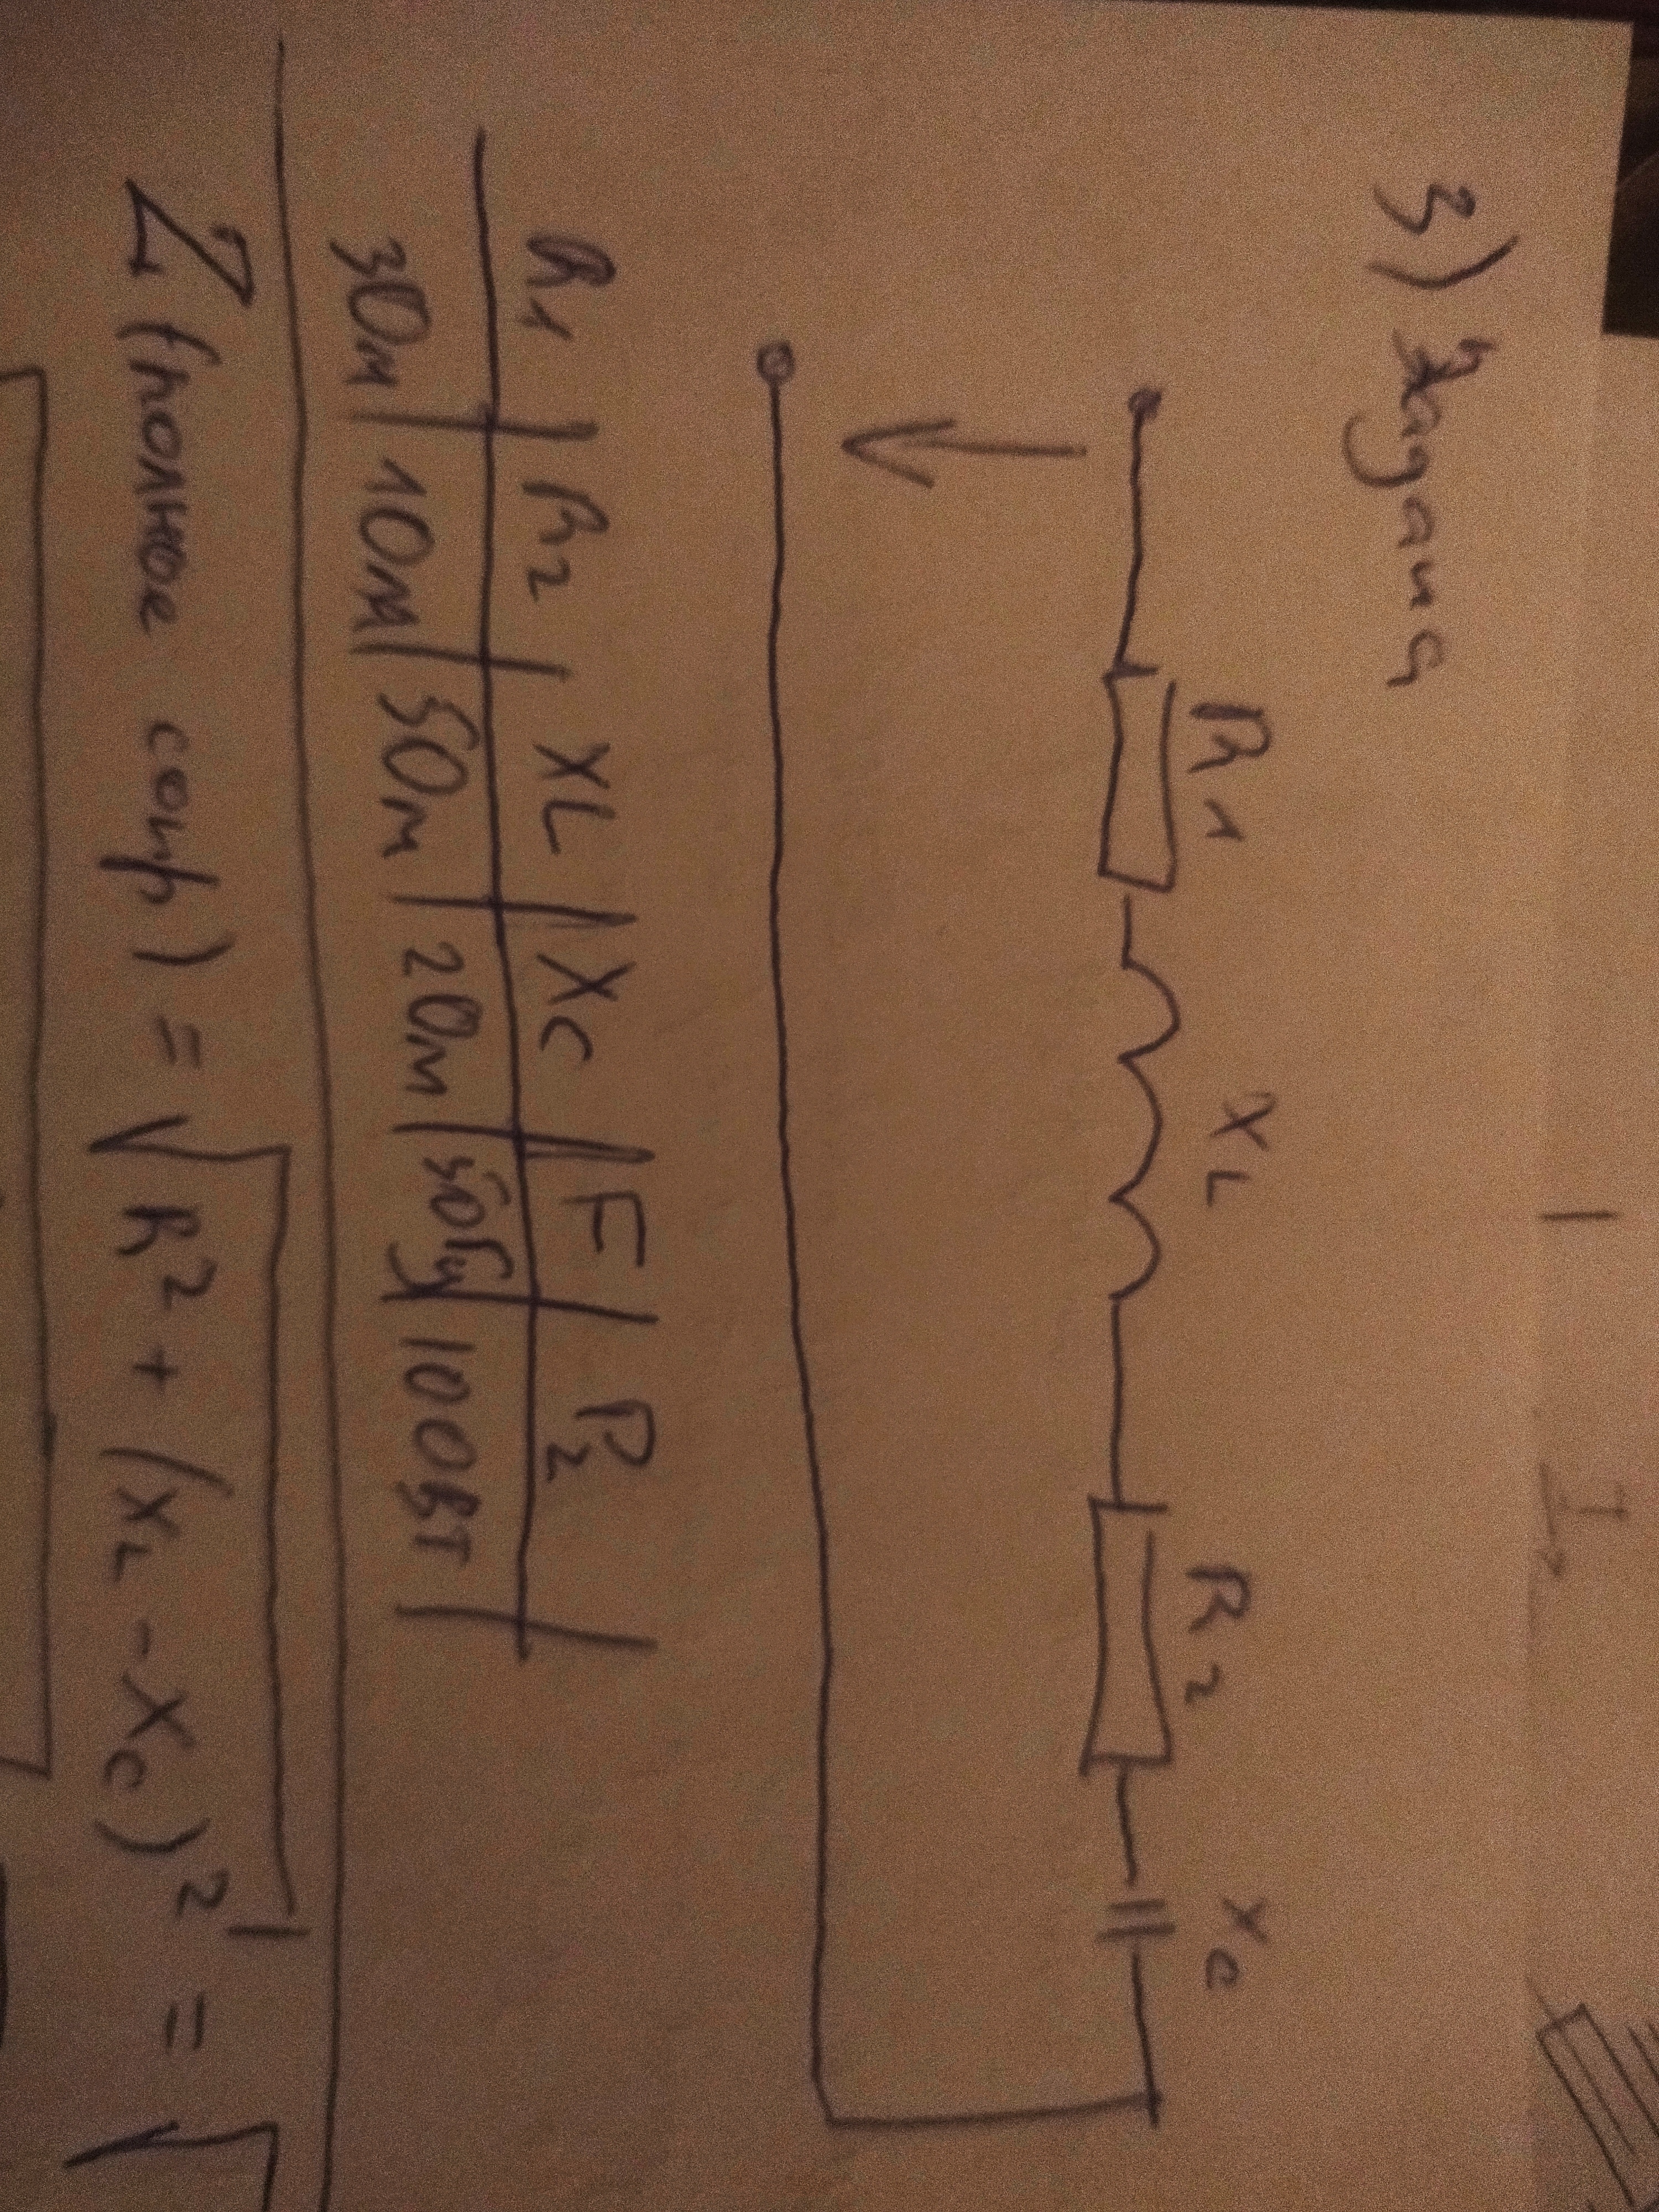 I
3) Задача
R1 XL R2 Xc
R1 | R2 | XL | Xc | F | P2
3Ом | 1Ом | 5Ом | 2Ом | 50Гц | 100Вт
Z (полное сопр) = √R² + (XL - Xc)² = √